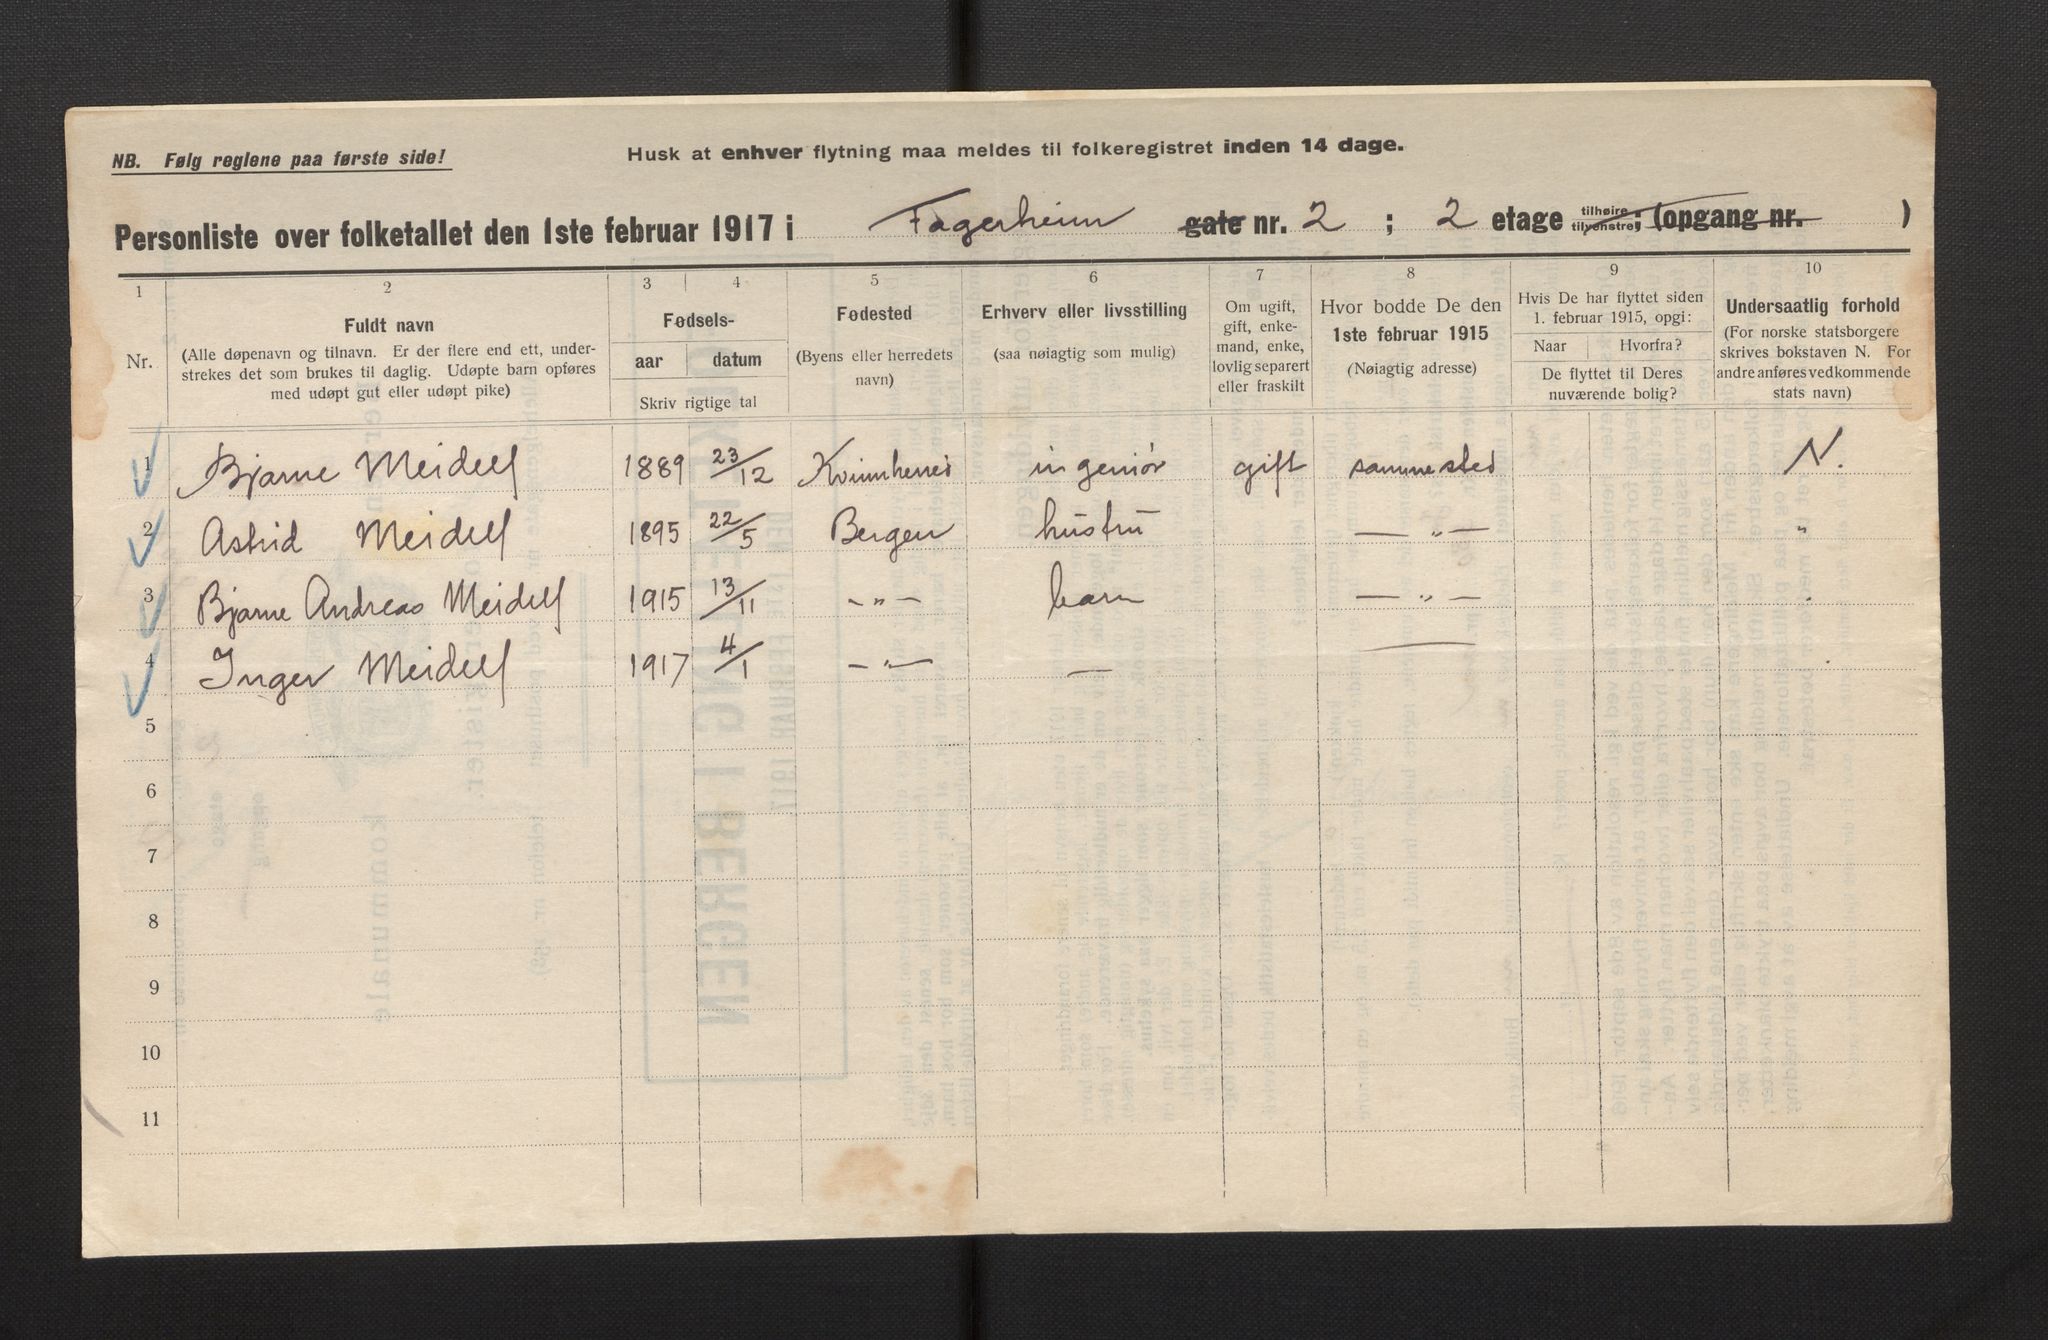 NB. Følg reglene paa første side!
Husk at enhver flytning maa meldes til folkeregistret inden 14 dage.
Personliste over folketallet den 1ste februar 1917 i Fagerheim gate nr. 2 ; 2 etage tilhøire tilvenstre; (opgang nr. )
1 2 3 4 5 6 7 8 9 10
Nr.
Fuldt navn
(Alle døpenavn og tilnavn. Er der flere end ett, under-
strekes det som brukes til daglig. Udøpte barn opføres
med udøpt gut eller udøpt pike)
Fødsels-
aar datum
Skriv rigtige tal
Fødested
(Byens eller herredets
navn)
Erhverv eller livsstilling
(saa nøiagtig som mulig)
Om ugift,
gift, enke-
mand, enke,
lovlig separert
eller fraskilt
Hvor bodde De den
1ste februar 1915
(Nøiagtig adresse)
Hvis De har flyttet siden
1. februar 1915, opgi:
Naar Hvorfra?
De flyttet til Deres
nuværende bolig?
Undersaatlig forhold
(For norske statsborgere
skrives bokstaven N. For
andre anføres vedkommende
stats navn)
1 Bjarne Meidell 1889 23/12 Kvinnherred ingeniør gift sammested N.
2 Astrid Meidell 1895 22/5 Bergen hustru — " — "
3 Bjarne Andreas Meidell 1915 13/11 — " — barn — " — "
4 Inger Meidell 1917 4/1 — " — — —
5
6
7
8
9
10
11